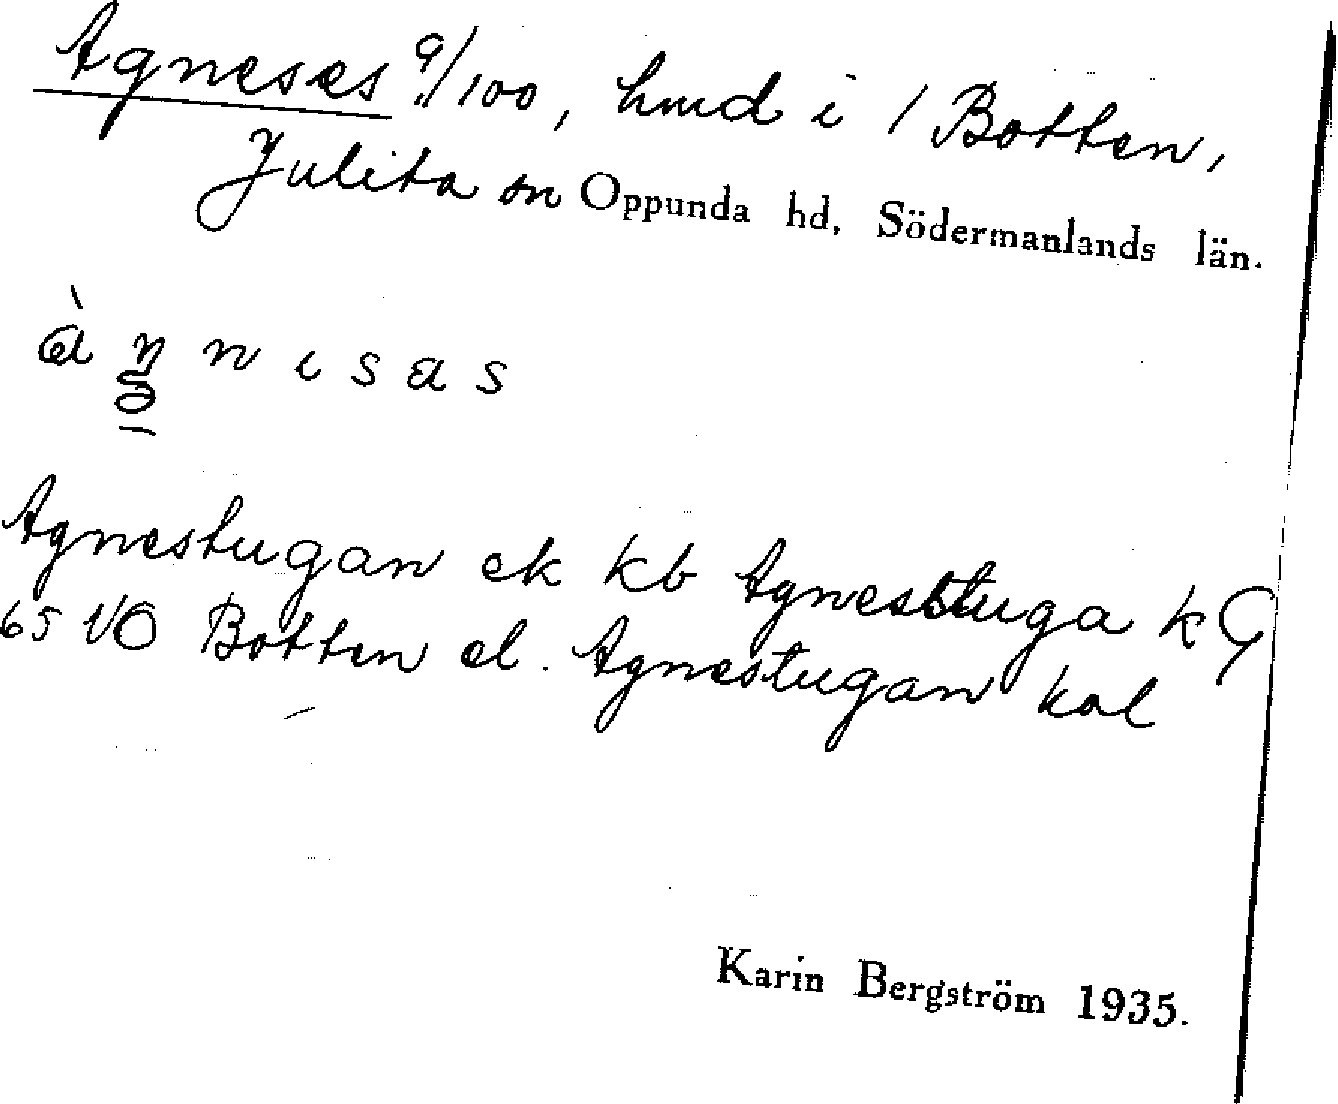 Agneses 9/100, hmd i 1 Botten,
Julita sn Oppunda hd, Södermanlands län.
àŋnisas
Agnestugan ek kb Agnestuga k G
65 1/0 Botten el. Agnestugan kal
Karin Bergström 1935.